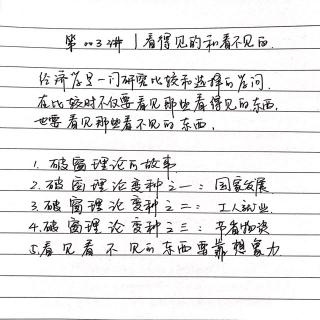 第003讲 | 看得见的和看不见的
经济学是一门研究比较和选择的学问.
在比较时不仅要看见那些看得见的东西,
也要看见那些看不见的东西.
1. 破窗理论的故事
2. 破窗理论变种之一: 国家发展
3. 破窗理论变种之二: 工人就业
4. 破窗理论变种之三: 节省物资
5. 看见看不见的东西要靠想象力